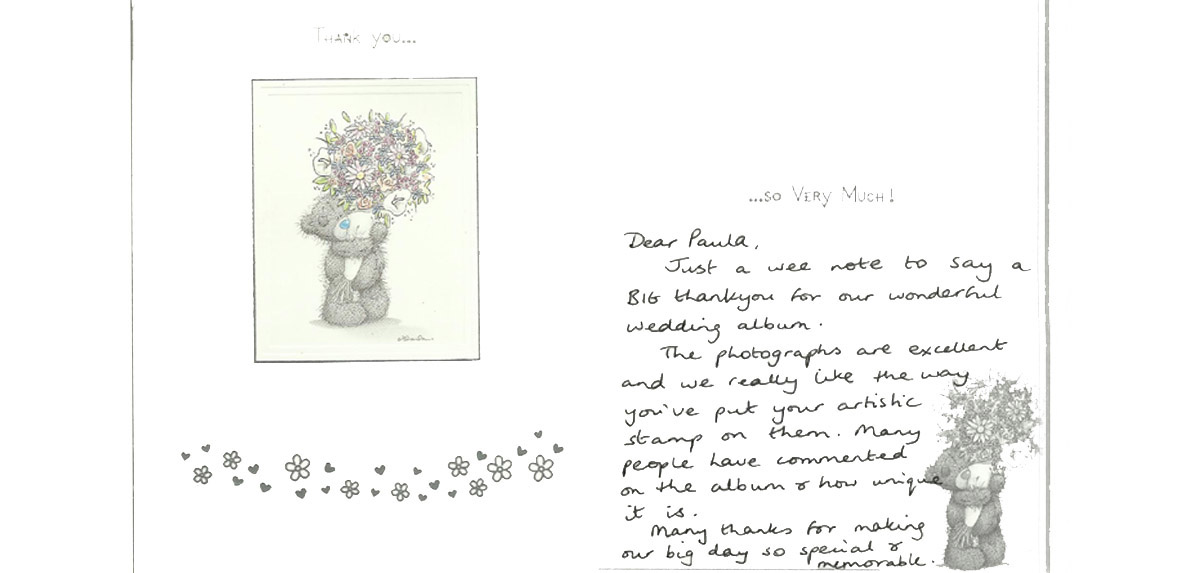 THANK you...
...so VERy MUCH!
Dear Paula,
Just a wee note to say a
BIG thankyou for our wonderful
wedding album.
The photographs are excellent
and we really like the way
you've put your artistic
stamp on them. Many
people have commented
on the album & how unique
it is.
Many thanks for making
our big day so special &
memorable.